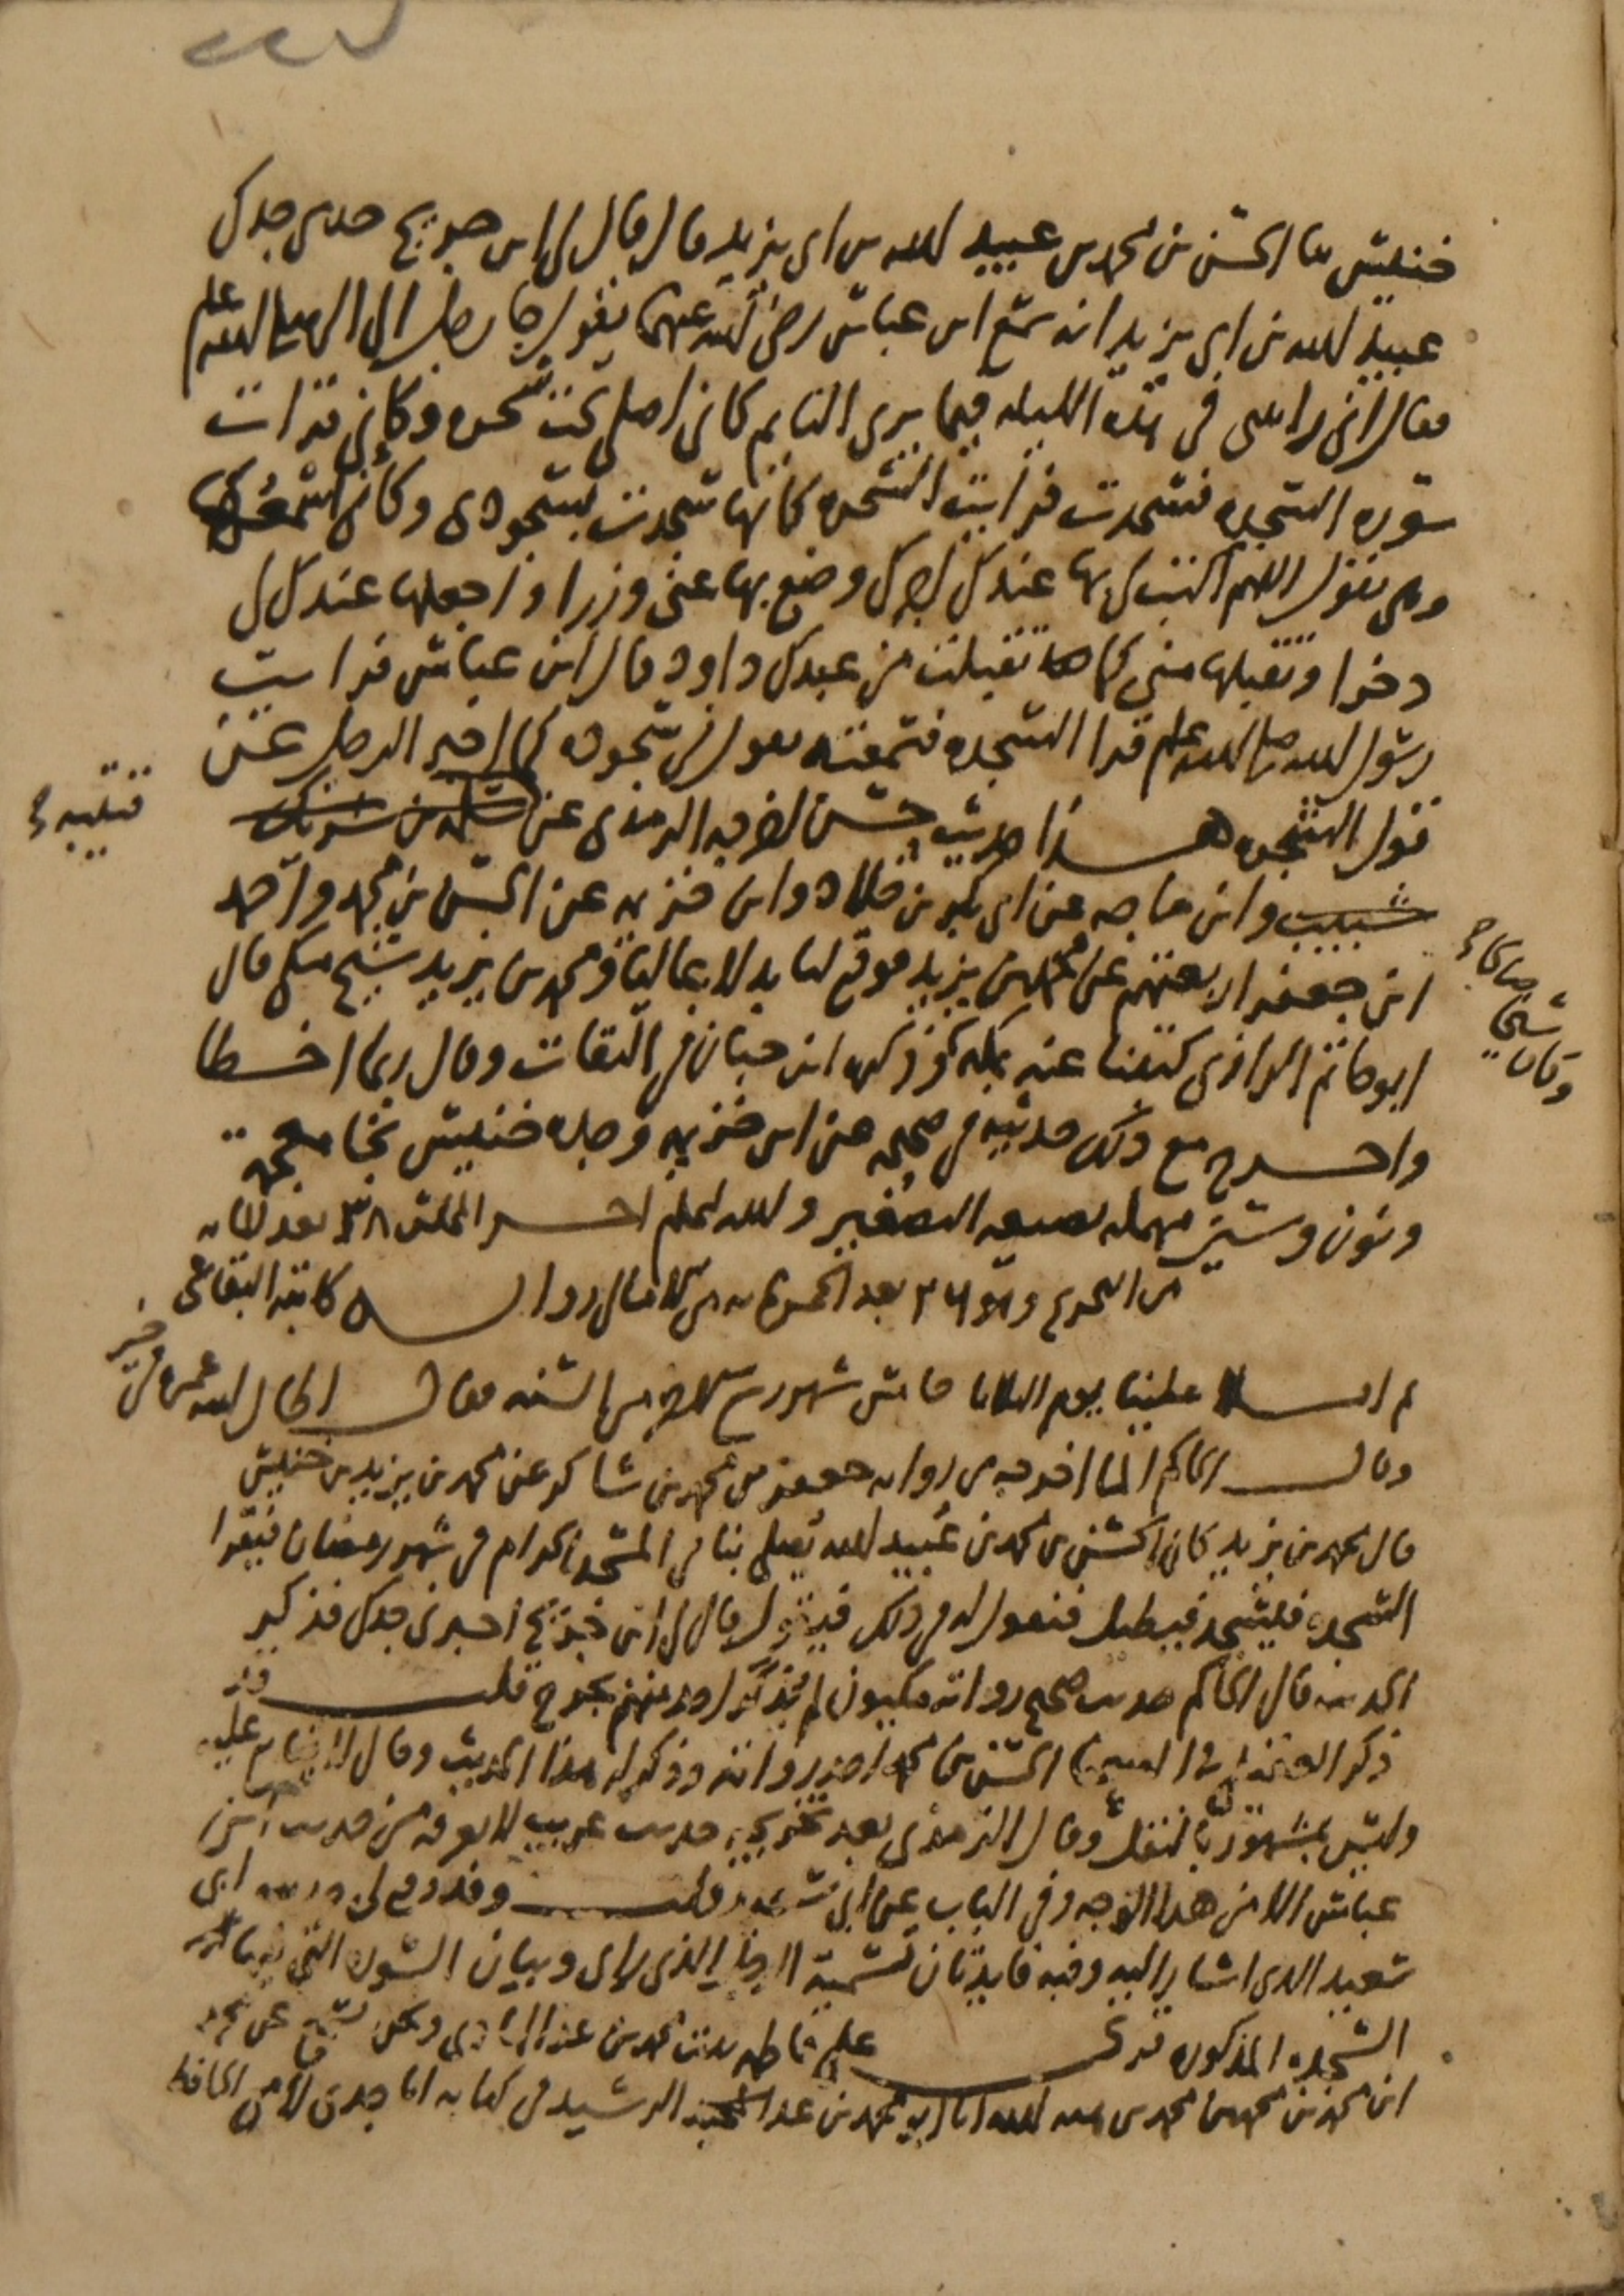 ٢٢٧
خنيس ثنا الحسن بن محمد بن عبيد الله بن ابي يزيد قال قال لي ابن جريج حدثني جدك
عبيد الله بن ابي يزيد انه سمع ابن عباس رضي الله عنهما يقول جا رجل الى النبي صلى الله عليه وسلم
فقال اني رايتني في هذه الليله فيما يرى النايم كاني اصلي تحت شجره وكاني قرات
سوره السجده فسجدت فرايت الشجره كانها سجدت بسجودي وكاني اسمعها
وهي تقول اللهم اكتب لي بها عندك اجرا وضع بها عني وزرا واجعلها عندك لي
ذخرا وتقبلها مني كما تقبلت من عبدك داود قال ابن عباس فرايت
رسول الله صلى الله عليه وسلم قرا السجده فسمعته يقول في سجوده كما اخبر الرجل عن
قول الشجره هذا حديث حسن اخرجه الترمذي عن سلمه بن شريك
قتيبه
شبيب وابن ماجه عن ابي بكر بن خلاد وابن خزيمه عن الحسن بن محمد واحمد
ابن جعفر اربعتهم عن محمد بن يزيد فوقع لنا بدلا عاليا ومحمد بن يزيد شيخ مكي قال
ابو حاتم الرازي كتبنا عنه بمكه وذكره ابن حبان في الثقات وقال ربما اخطا
وكان شيخا صالحا
واخرج مع ذلك حديثه في صحيحه عن ابن خزيمه وجده خنيس بخا معجمه
ونون وسين مهمله بصيغه التصغير والله اعلم اخر المجلس ٣٨ بعد المايه
من التخريج وهو بعد الخمس مايه من الامالي روايه كاتبه البقاعي
ثم املا علينا يوم الثلاثا خامس شهر ربيع الاخر من السنه فقال احال الله عمره في خير
وقال الحاكم لما اخرجه من روايه جعفر بن محمد بن شاكر عن محمد بن يزيد بن خنيس
قال محمد بن يزيد كان الحسن بن محمد بن عبيد الله يصلي بنا في المسجد الحرام في شهر رمضان فيقرا
السجده فيسجد فيطيل فنقول له في ذلك فيقول قال لي ابن جريج اخبرني جدك فذكر
الحديث قال الحاكم حديث صحيح رواته مكيون لم يذكر واحد منهم بجرح قلت وقد
ذكر العقيلي في الحسن بن محمد احد رواته وذكر له هذا الحديث وقال لا يتابع عليه
وليس بمشهور بالنقل وقال الترمذي بعد تخريجه حديث غريب لا نعرفه من حديث ابن
عباس الا من هذا الوجه وفي الباب عن ابي سعيد قلت وقد وقع لي حديث ابي
سعيد الذي اشار اليه وفيه فايدتان تسميه الرجل الذي راى وبيان السوره التي فيها
السجده المذكوره قرئ على فاطمه بنت محمد بن عبد الهادي ونحن نسمع عن محمد
ابن محمد بن محمد بن محمد بن هبه الله انا ابو محمد بن عبد الرشيد في كتابه انا جدي لامي الحافظ